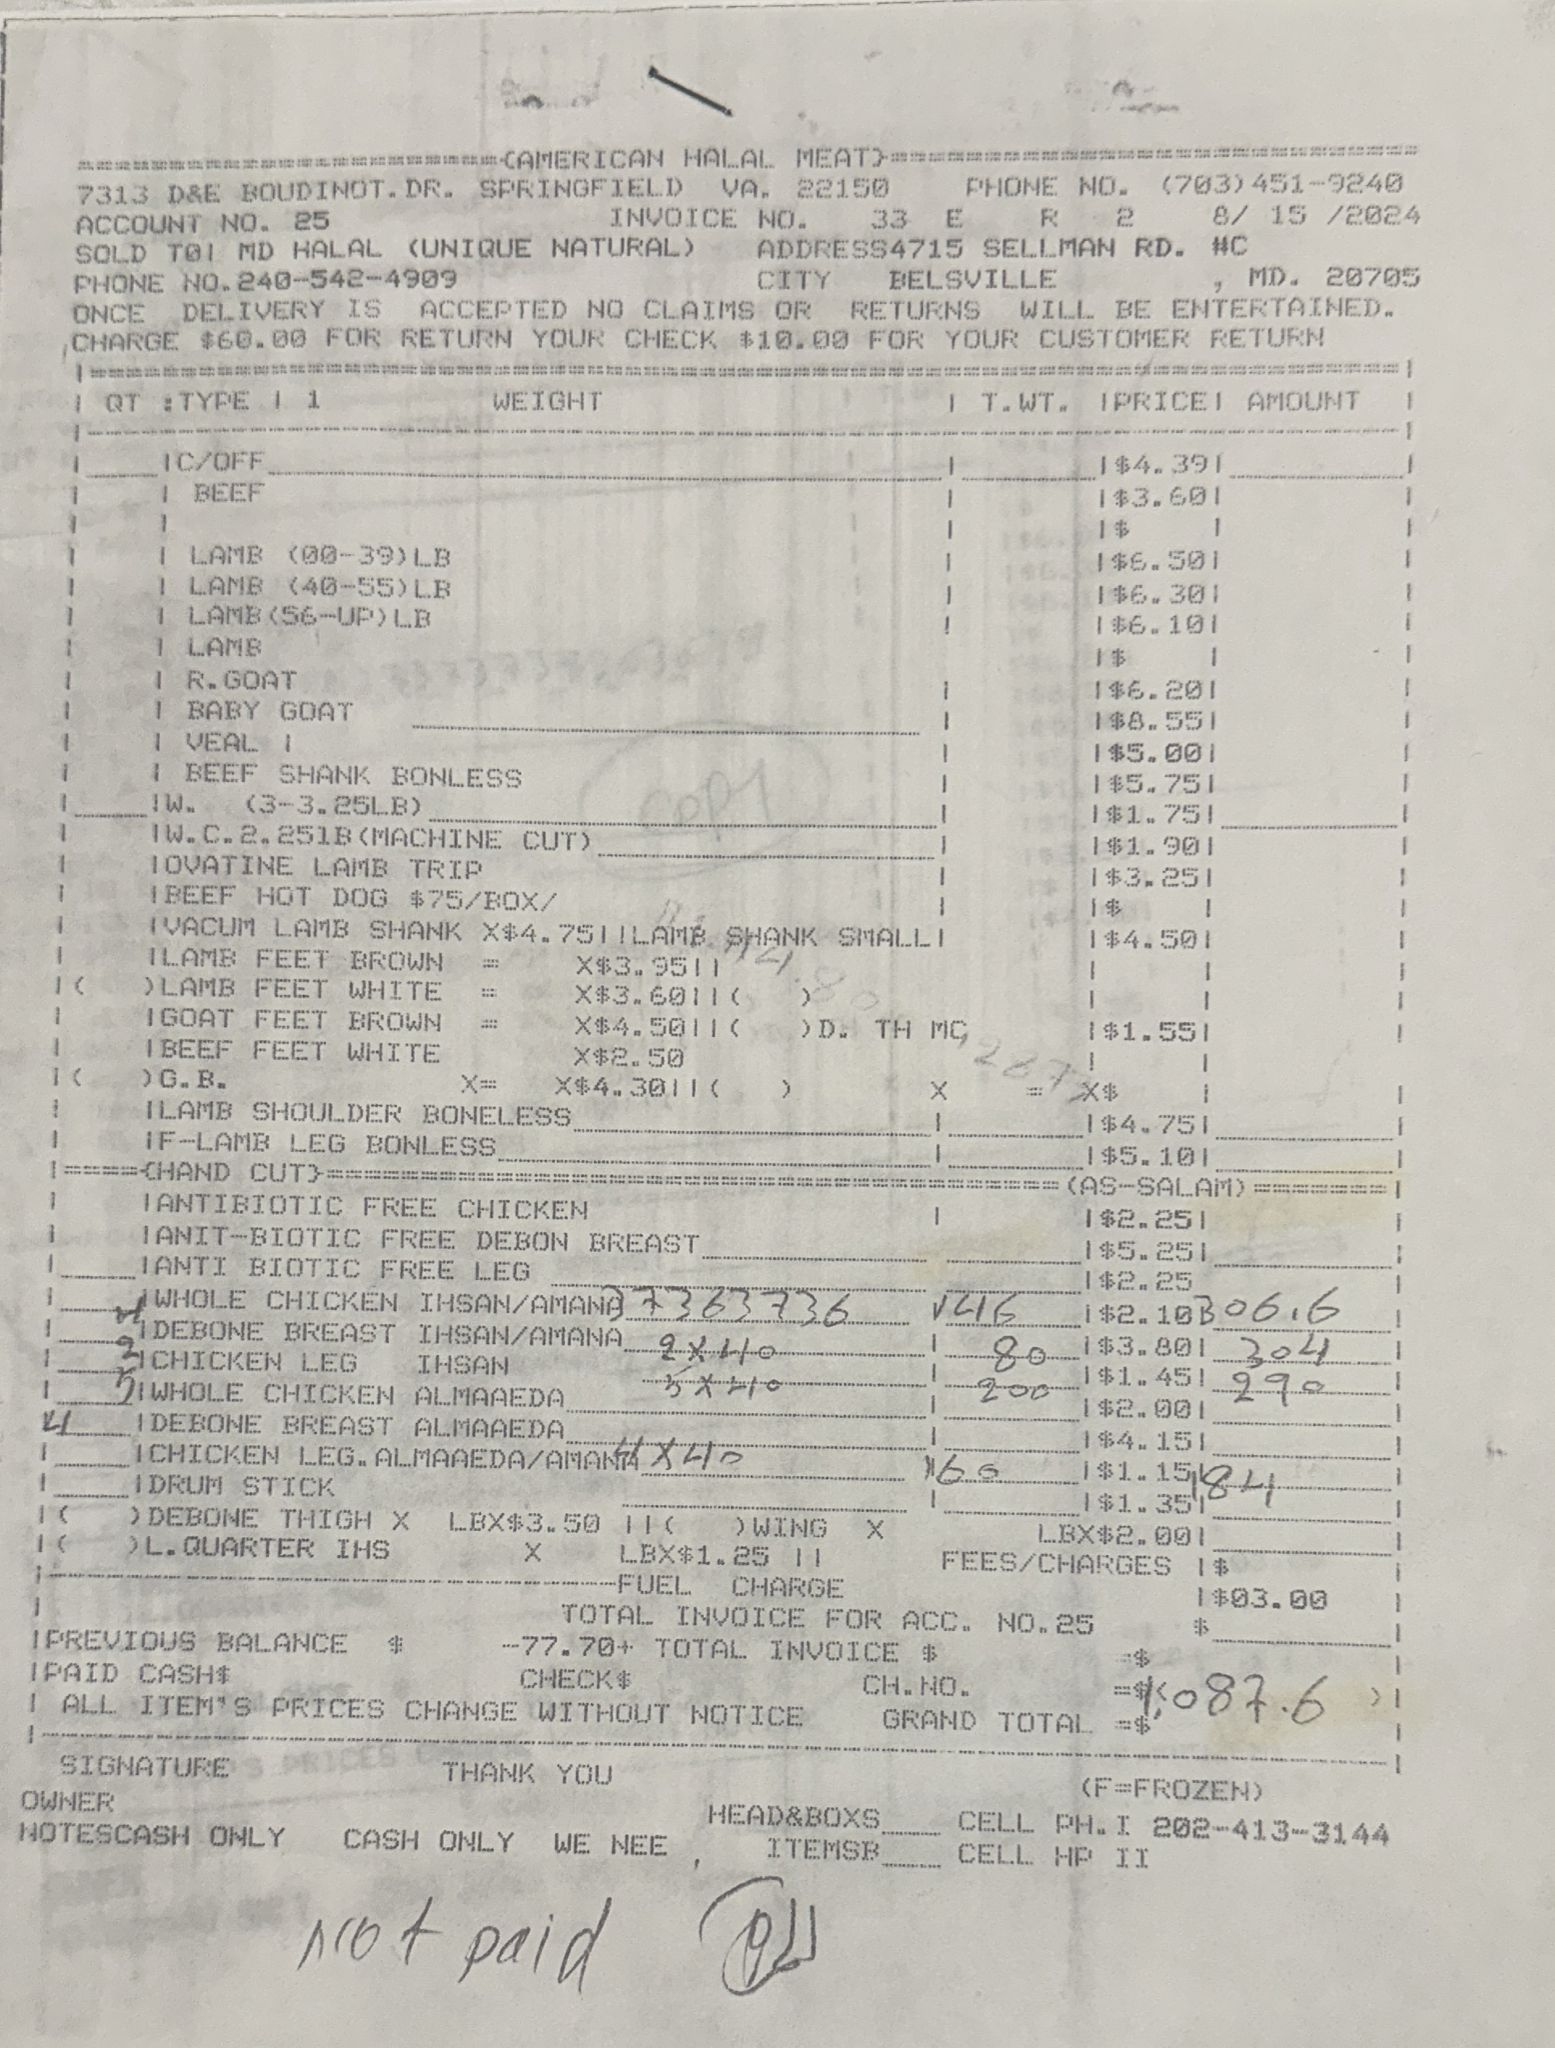 {AMERICAN HALAL MEAT}
7313 D&E BOUDINOT.DR. SPRINGFIELD VA. 22150 PHONE NO. (703)451-9240
ACCOUNT NO. 25 INVOICE NO. 33 E R 2 8/ 15 /2024
SOLD TO| MD HALAL (UNIQUE NATURAL) ADDRESS4715 SELLMAN RD. #C
PHONE NO.240-542-4909 CITY BELSVILLE , MD. 20705
ONCE DELIVERY IS ACCEPTED NO CLAIMS OR RETURNS WILL BE ENTERTAINED.
CHARGE $60.00 FOR RETURN YOUR CHECK $10.00 FOR YOUR CUSTOMER RETURN
| QT :TYPE | 1 WEIGHT | T.WT. |PRICE| AMOUNT |
|C/OFF |$4.39|
| BEEF |$3.60|
|$ |
| LAMB (00-39)LB |$6.50|
| LAMB (40-55)LB |$6.30|
| LAMB(56-UP)LB |$6.10|
| LAMB |$ |
| R.GOAT |$6.20|
| BABY GOAT |$8.55|
| VEAL | |$5.00|
| BEEF SHANK BONLESS |$5.75|
|W. (3-3.25LB) |$1.75|
|W.C.2.251B(MACHINE CUT) |$1.90|
|OVATINE LAMB TRIP |$3.25|
|BEEF HOT DOG $75/BOX/ |$ |
|VACUM LAMB SHANK X$4.75||LAMB SHANK SMALL| |$4.50|
|LAMB FEET BROWN = X$3.95||
|( )LAMB FEET WHITE = X$3.60||( )
|GOAT FEET BROWN = X$4.50||( )D. TH MC |$1.55|
|BEEF FEET WHITE X$2.50
|( )G.B. X= X$4.30||( ) X = X$
|LAMB SHOULDER BONELESS |$4.75|
|F-LAMB LEG BONLESS |$5.10|
{HAND CUT} (AS-SALAM)
|ANTIBIOTIC FREE CHICKEN |$2.25|
|ANIT-BIOTIC FREE DEBON BREAST |$5.25|
|ANTI BIOTIC FREE LEG |$2.25
4 |WHOLE CHICKEN IHSAN/AMANA 37363736 146 |$2.10 306.6
2 |DEBONE BREAST IHSAN/AMANA 2X40 80 |$3.80| 304
5 |CHICKEN LEG IHSAN 5X40 200 |$1.45| 290
|WHOLE CHICKEN ALMAAEDA |$2.00|
4 |DEBONE BREAST ALMAAEDA |$4.15|
|CHICKEN LEG.ALMAAEDA/AMANA 4X40 160 |$1.15| 184
|DRUM STICK |$1.35|
|( )DEBONE THIGH X LBX$3.50 ||( )WING X LBX$2.00|
|( )L.QUARTER IHS X LBX$1.25 || FEES/CHARGES |$
FUEL CHARGE |$03.00
TOTAL INVOICE FOR ACC. NO.25 $
|PREVIOUS BALANCE $ -77.70+ TOTAL INVOICE $ =$
|PAID CASH$ CHECK$ CH.NO. =$( )|
| ALL ITEM'S PRICES CHANGE WITHOUT NOTICE GRAND TOTAL =$ 1,087.6
SIGNATURE THANK YOU (F=FROZEN)
OWNER HEAD&BOXS CELL PH.I 202-413-3144
NOTESCASH ONLY CASH ONLY WE NEE , ITEMSB CELL HP II
Not paid